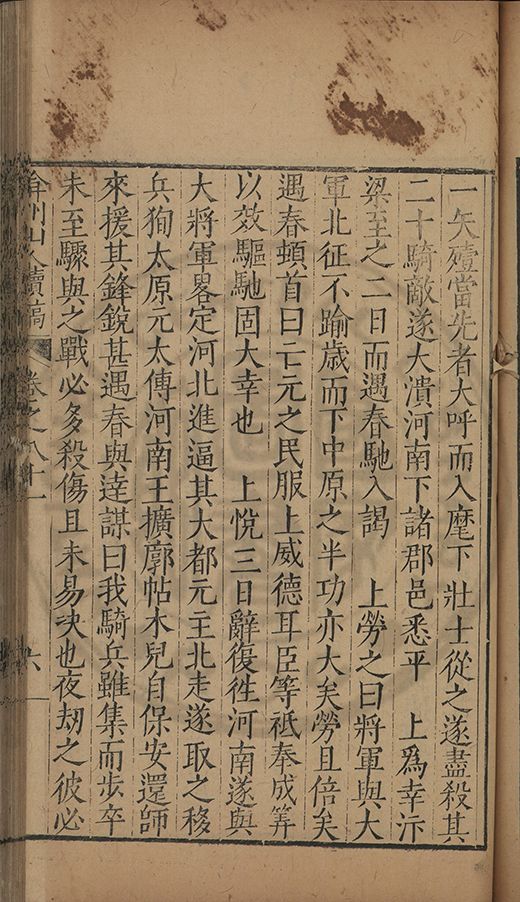 一矢殪當先者大呼而入麾下壯士從之遂盡殺其
二十騎敵遂大潰河南下諸郡邑悉平　上爲幸汴
梁至之二日而遇春馳入謁　上勞之曰將軍與大
軍北征不踰歲而下中原之半功亦大矣勞且倍矣
遇春頓首曰亡元之民服上威德耳臣等祗奉成筭
以效驅馳固大幸也　上悅三日辭復徃河南遂與
大將軍畧定河北進逼其大都元主北走遂取之移
兵狥太原元太傅河南王擴廓帖木兒自保安還師
來援其鋒銳甚遇春與逹謀曰我騎兵雖集而步卒
未至驟與之戰必多殺傷且未易决也夜刼之彼必
弇州山人續稿　卷之八十一　六